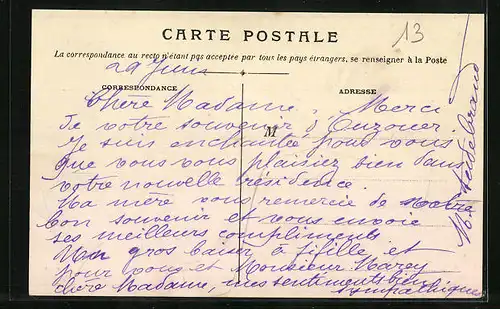 13
CARTE POSTALE
La correspondance au recto n'étant pas acceptée par tous les pays étrangers, se renseigner à la Poste
29 Juin
CORRESPONDANCE
ADRESSE
M
Chère Madame, Merci
de votre souvenir d'Ouzouer.
Je suis enchantée pour vous
que vous vous plaisiez bien dans
votre nouvelle résidence.
Ma mère vous remercie de votre
bon souvenir et vous envoie
ses meilleurs compliments
Un gros baiser à fifille et
pour vous et Monsieur Marey
chère Madame, mes sentiments bien
sympathiques